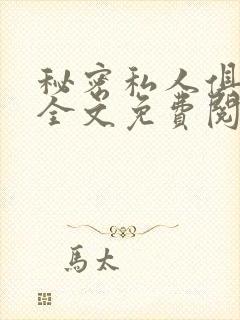 秘密私人俱
全文免費閱
馬太